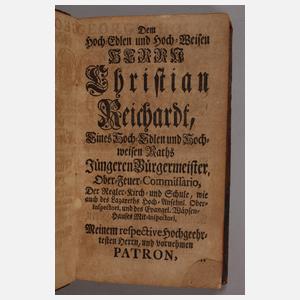 Dem
Hoch-Edlen und Hoch-Weisen
HERRN
Christian
Reichardt,
Eines Hoch-Edlen und Hoch-
weisen Raths
Jüngeren Bürgermeister,
Ober-Feuer-Commissario,
Der Regler-Kirch- und Schule, wie
auch des Lazareths Hoch-Ansehnl. Ober-
inspectori, und des Evangel. Wäysen-
Hauses Mit-inspectori,
Meinem respective Hochgeehr-
testen Herrn, und vornehmen
PATRON,